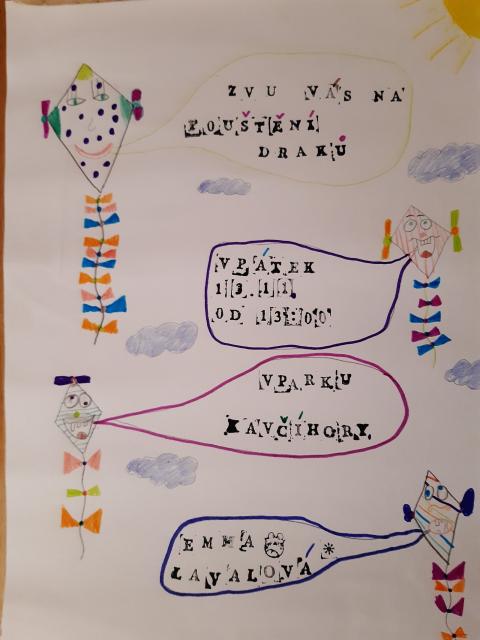 ZVU VÁS NA
POUŠTĚNÍ
DRAKŮ
V PÁTEK
13.11.
OD 13:00
V PARKU
KAVČÍ HORY
EMMA
LAVALOVÁ